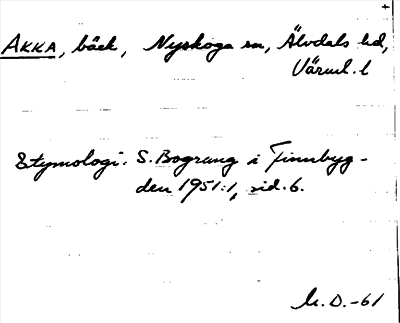 +
AKKA, bäck, Nyskoga sn, Älvdals hd,
Värml. l
Etymologi: S. Bograng i Finnbyg-
den 1951:1, sid. 6.
M.D.-61